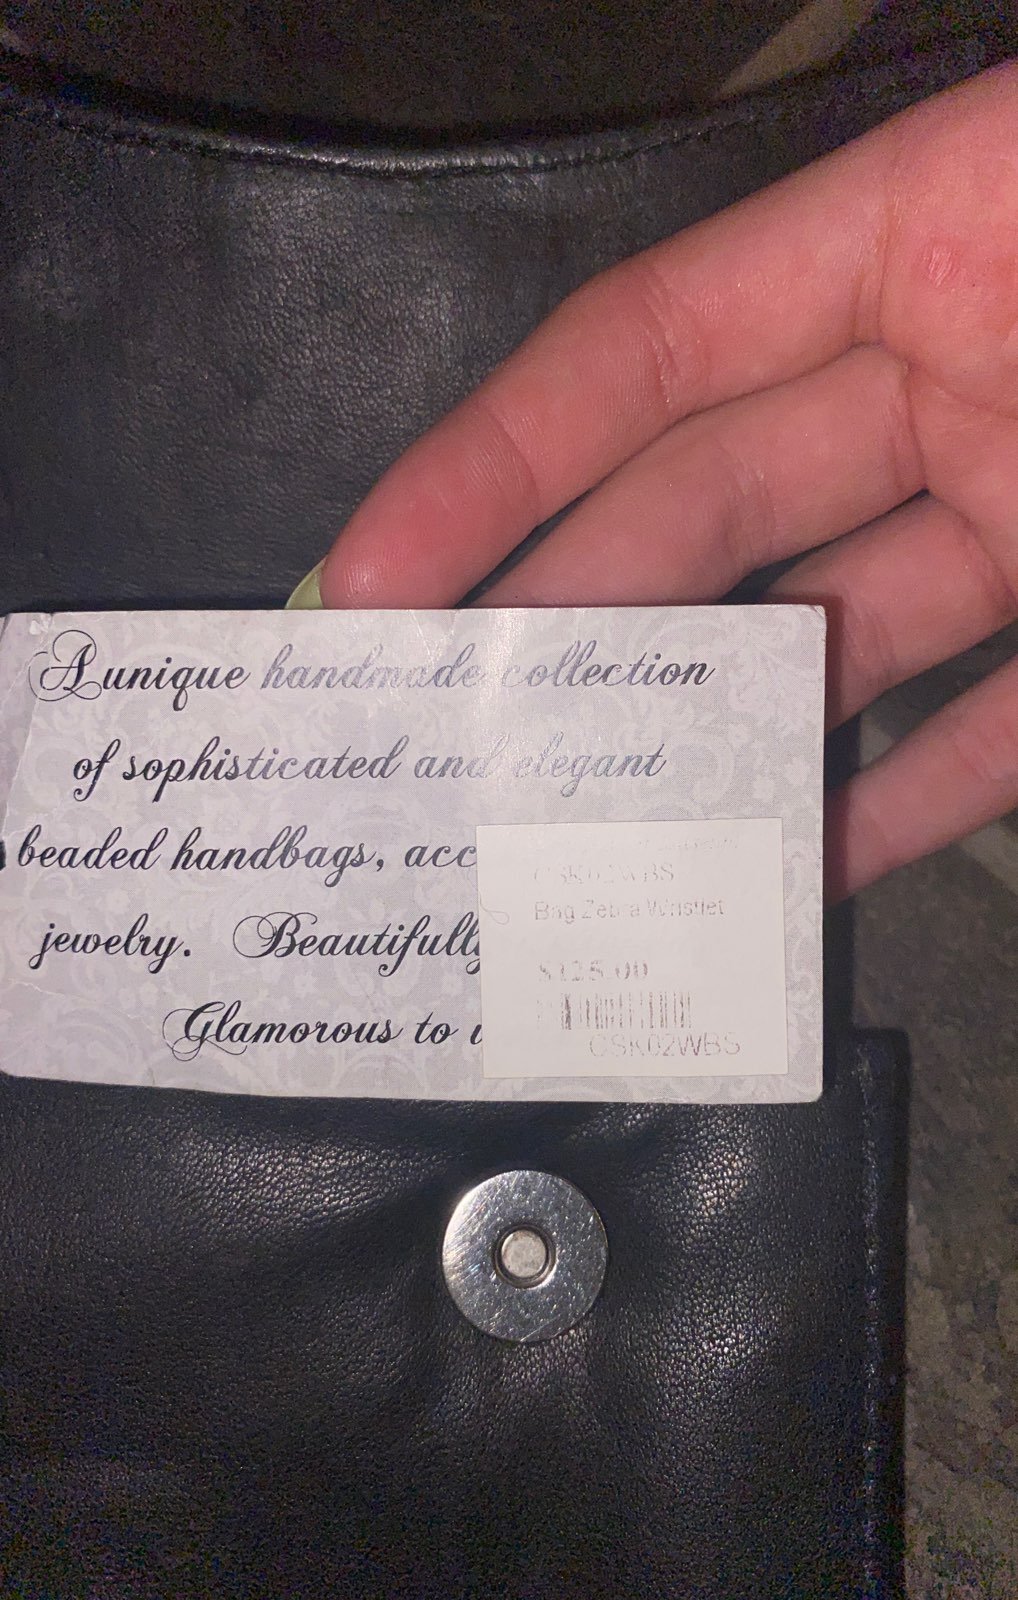 A unique handmade collection
of sophisticated and elegant
beaded handbags, acc
jewelry. Beautifully
Glamorous to
CSK02WBS
Bag Zebra Wristlet
$125.00
CSK02WBS